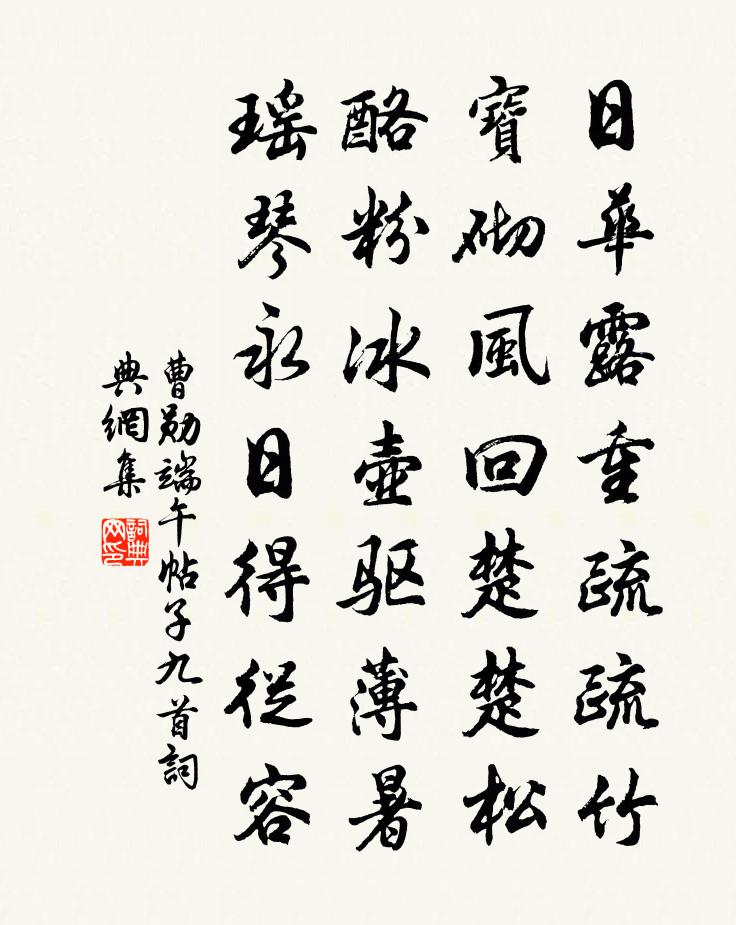 日華露重疏疏竹
寶砌風回楚楚松
酪粉冰壺驱薄暑
瑶琴永日得從容
曹勛端午帖子九首詞
典網集
詞典
网印